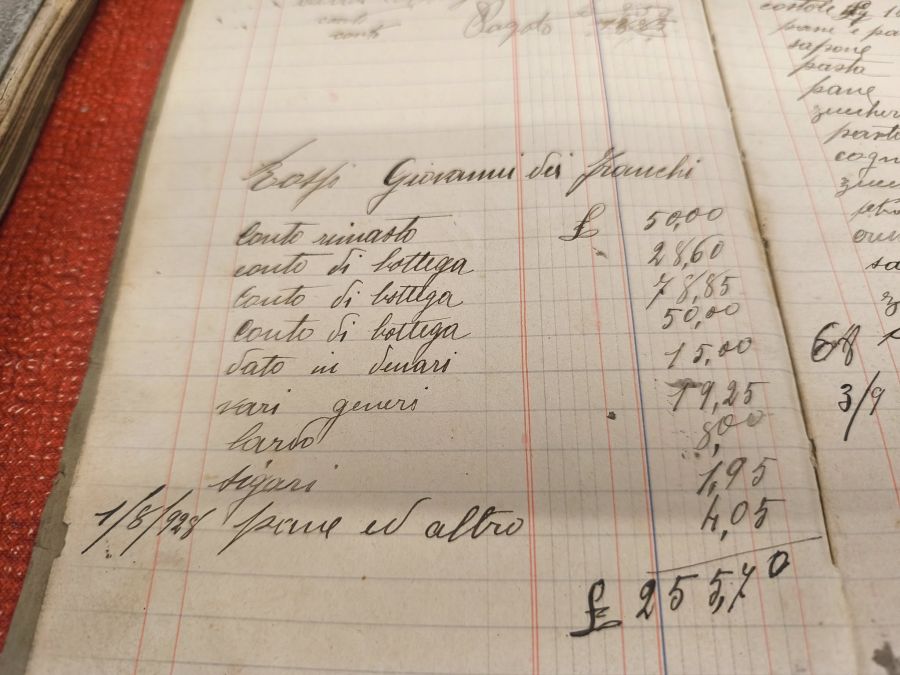 conto
conto Pagato
Rossi Giovanni dei Franchi
conto rimasto £ 50,00
conto di bottega 28,60
Conto di bottega 78,85
Conto di bottega 50,00
dato in denari 15,00
vari generi 19,25
lardo 8,00
sigari 1,95
1/8/928 pane ed altro 4,05
£ 255,70
costole
pane e pa
sapone
pasta
pane
zuccher
paste
cogn
zucc
sa
3/9